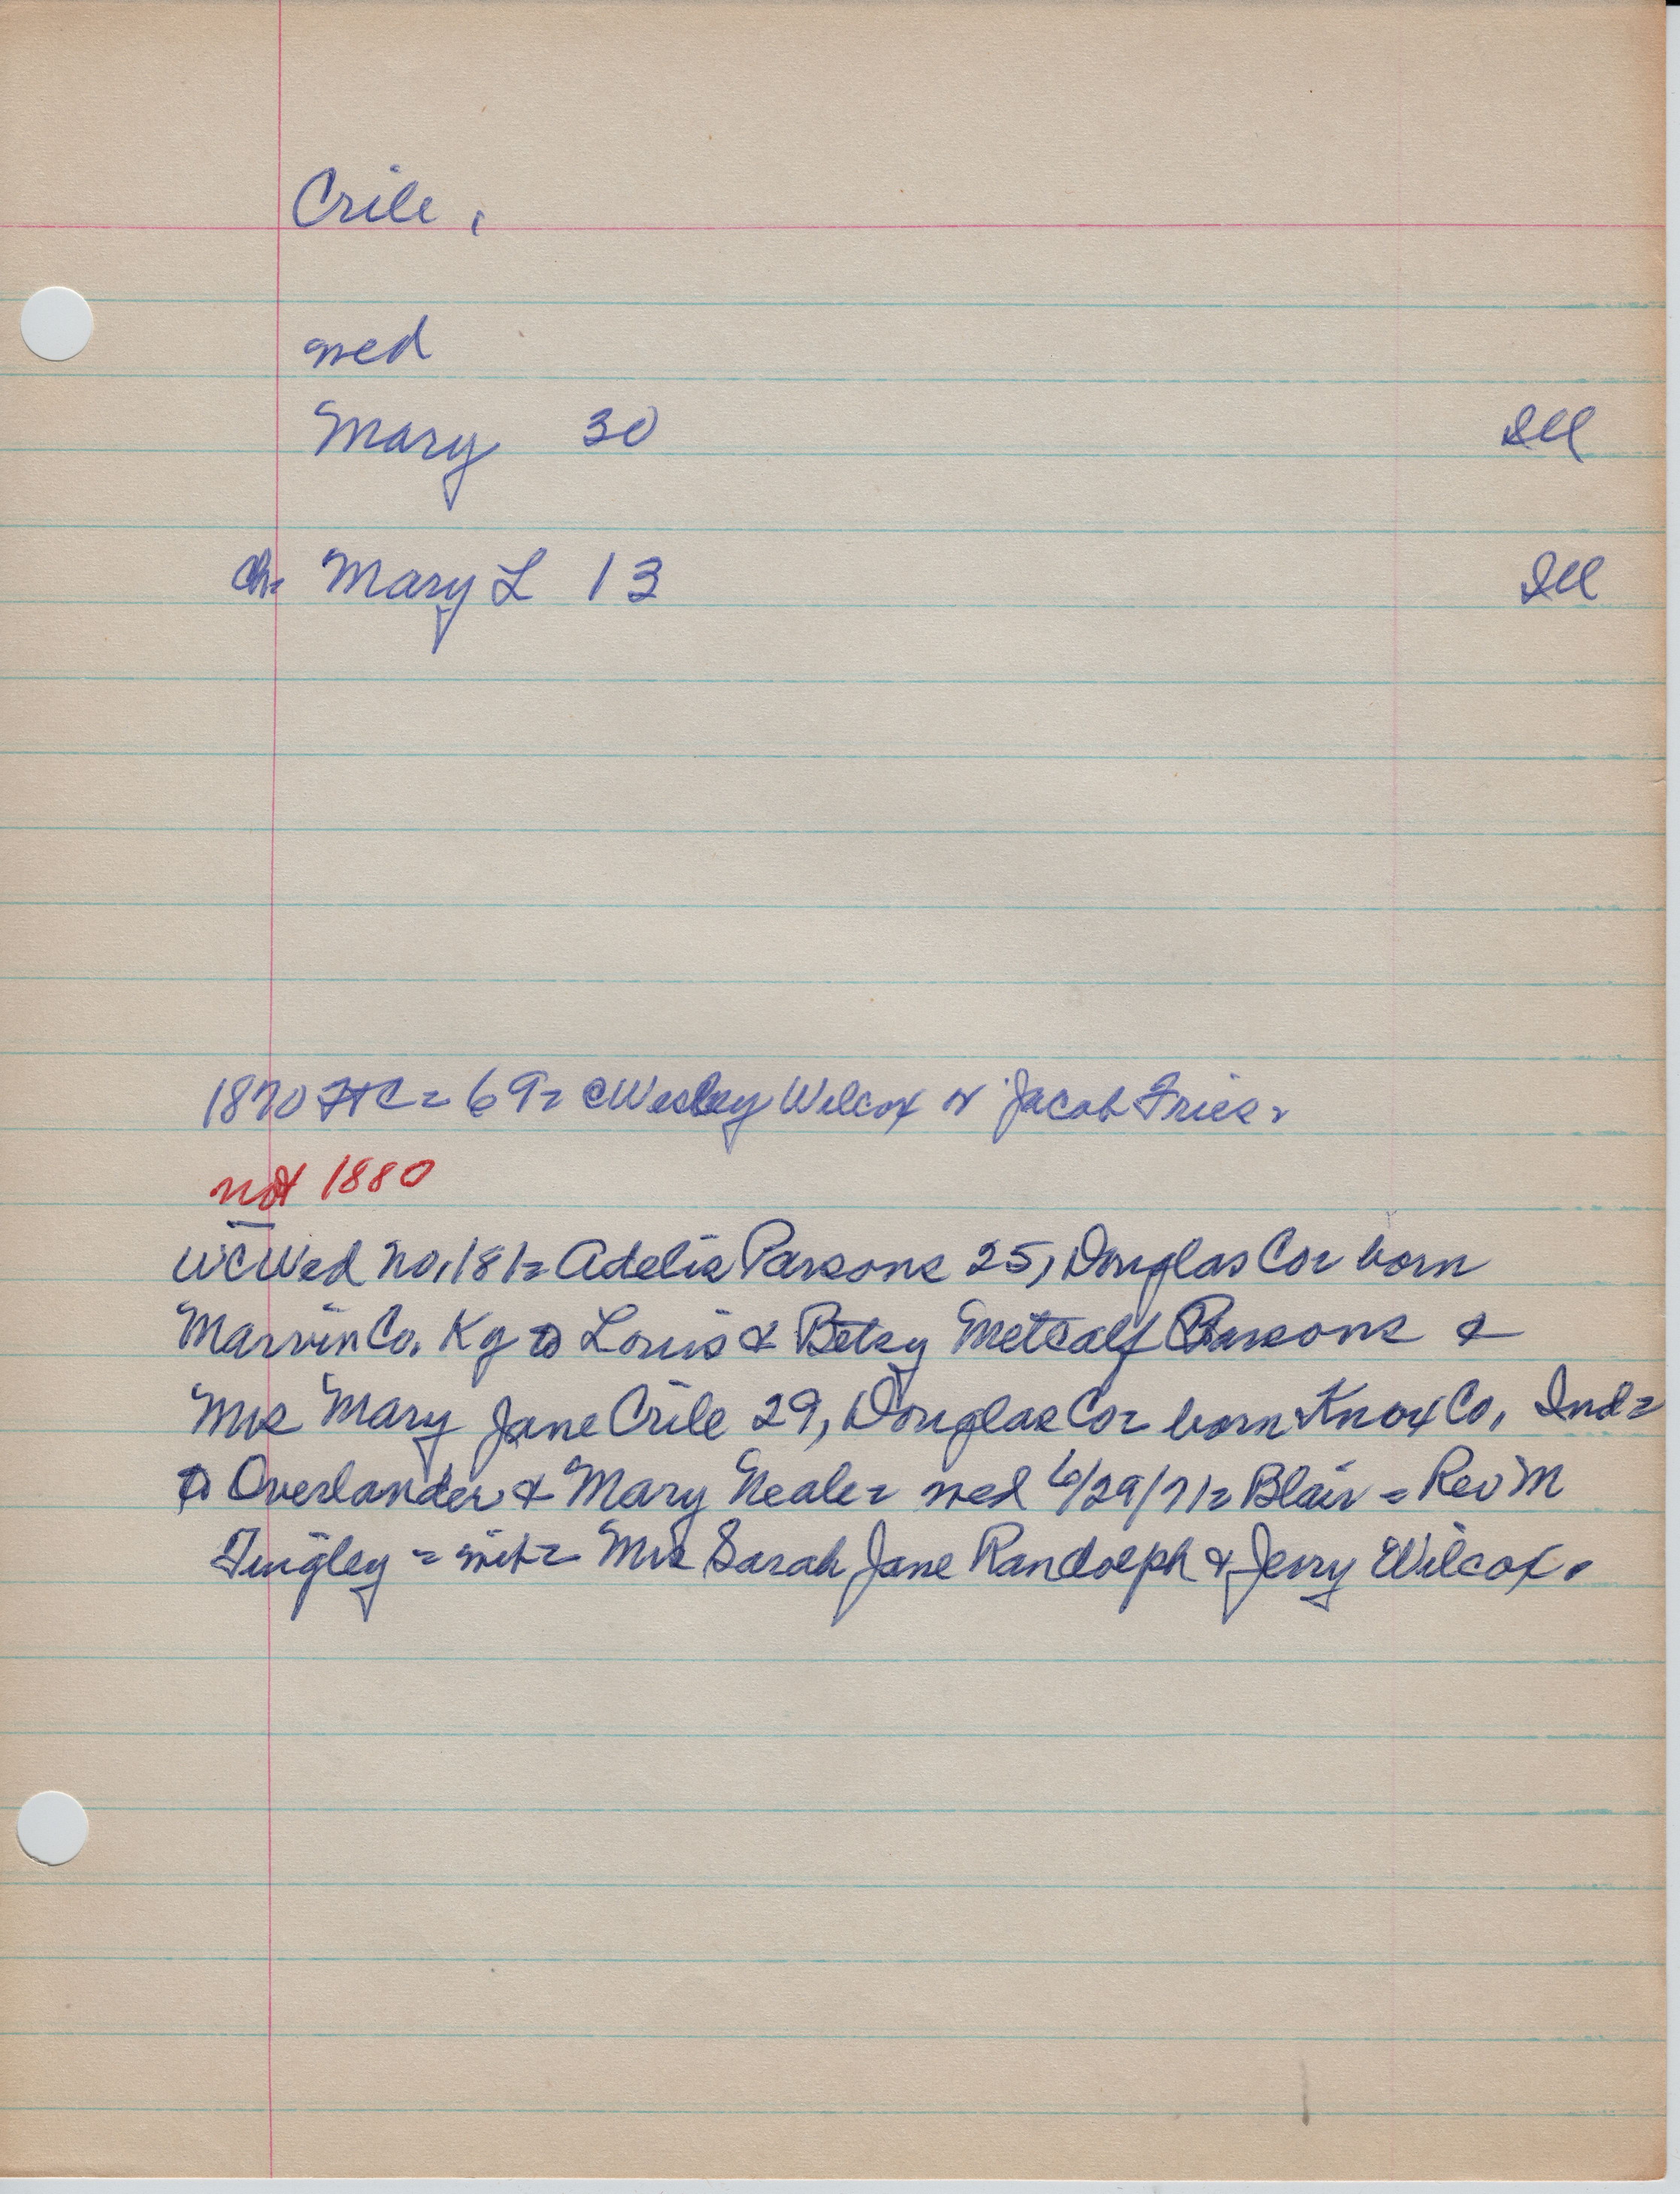 Crile,
wed
Mary 30 Ill
ch= Mary L 13 Ill
1870 FtC = 69= Wesley Wilcox or Jacob Fries=
not 1880
WCWed No, 181= Adelis Parsons 25, Douglas Co= born
Marvin Co. Ky to Louis & Betsy Metcalf Parsons &
Mrs Mary Jane Crile 29, Douglas Co= born Knox Co, Ind=
to Overlander & Mary Neale= wed 6/29/71= Blair = Rev M
Tingley = wit= Mrs Sarah Jane Randolph & Jerry Wilcox.